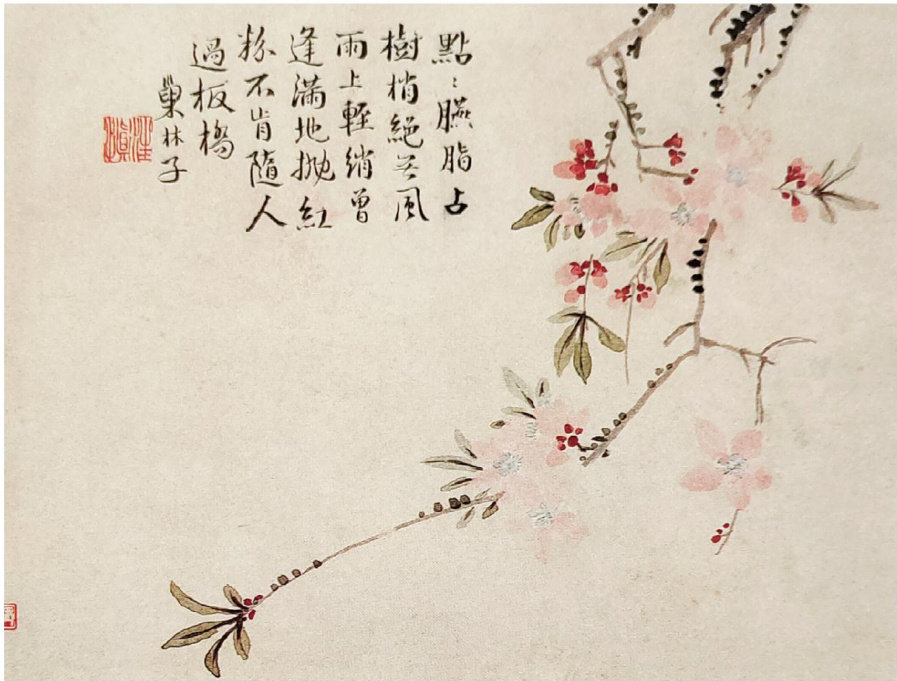 點〻臙脂占
樹梢絕无風
雨上輕綃曾
逢滿地拋紅
粉不肯隨人
過板橋
巢林子